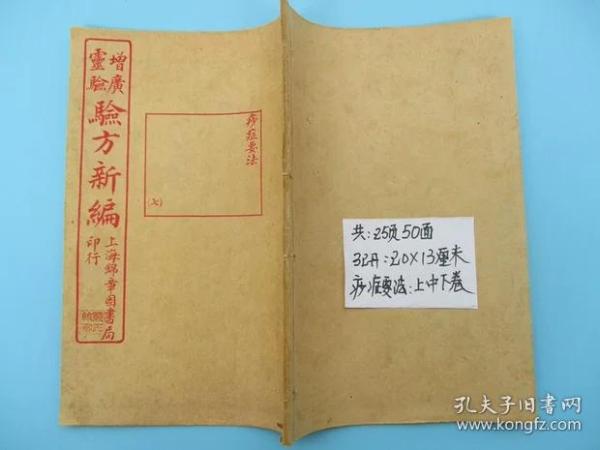 增廣
靈驗
驗方新編
上海錦章圖書局
印行
痧症要法
(七)
共:25页50面
32开:20×13厘米
痧症要法:上中下卷
孔夫子旧书网
www.kongfz.com